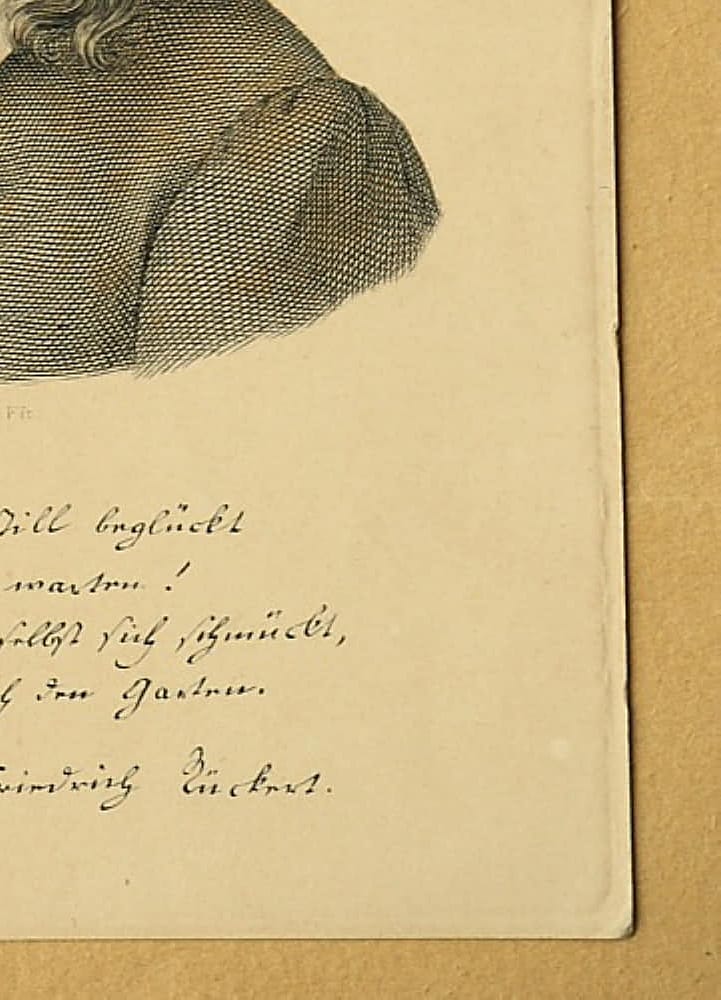 still beglückt
warten!
selbst sich schmückt,
den Garten.
Friedrich Rückert.